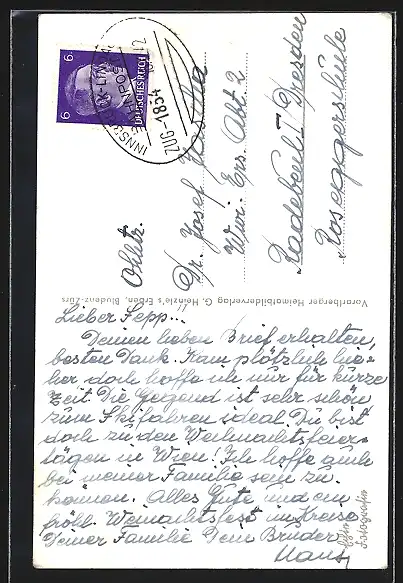 6 6
DEUTSCHES REICH
ZUG-1834
Obltr.
Dr. Josef
Wur. Ers. Abt 2
Radebeul I Dresden
Roseggerschule
Vorarlberger Heimatbilderverlag G. Heinzle's Erben, Bludenz-Zürs
Lieber Sepp...!!
Deinen lieben Brief erhalten,
besten Dank. Kam plötzlich hie=
her doch hoffe ich nur für kurze
Zeit. Die Gegend ist sehr schön
zum Skifahren ideal. Du bist
doch zu den Weihnachtsfeier-
tägen in Wien! Ich hoffe auch
bei meiner Familie sein zu
können. Alles Gute und ein
fröhl. Weihnachtsfest im Kreise
Deiner Familie Dein Bruder
Hans
Echte
Fotografie